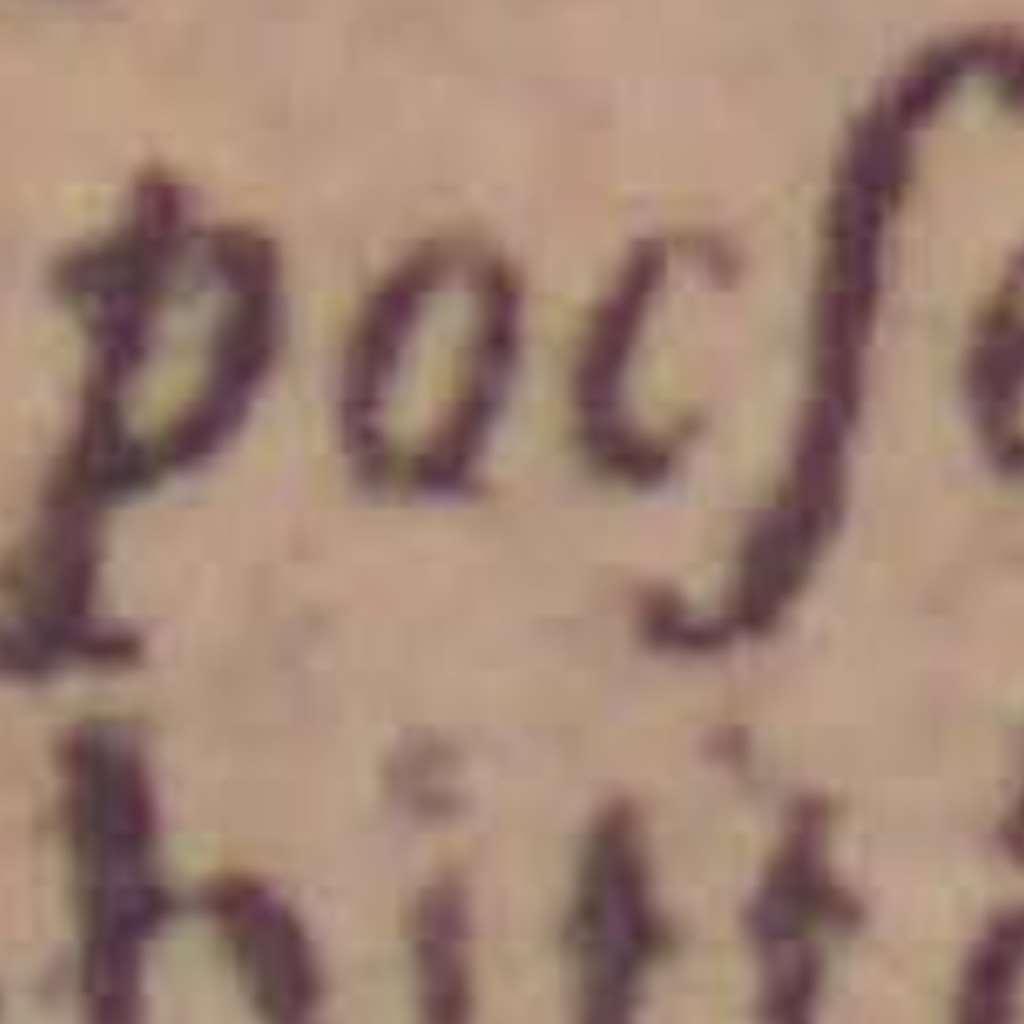 pocſ
hitt